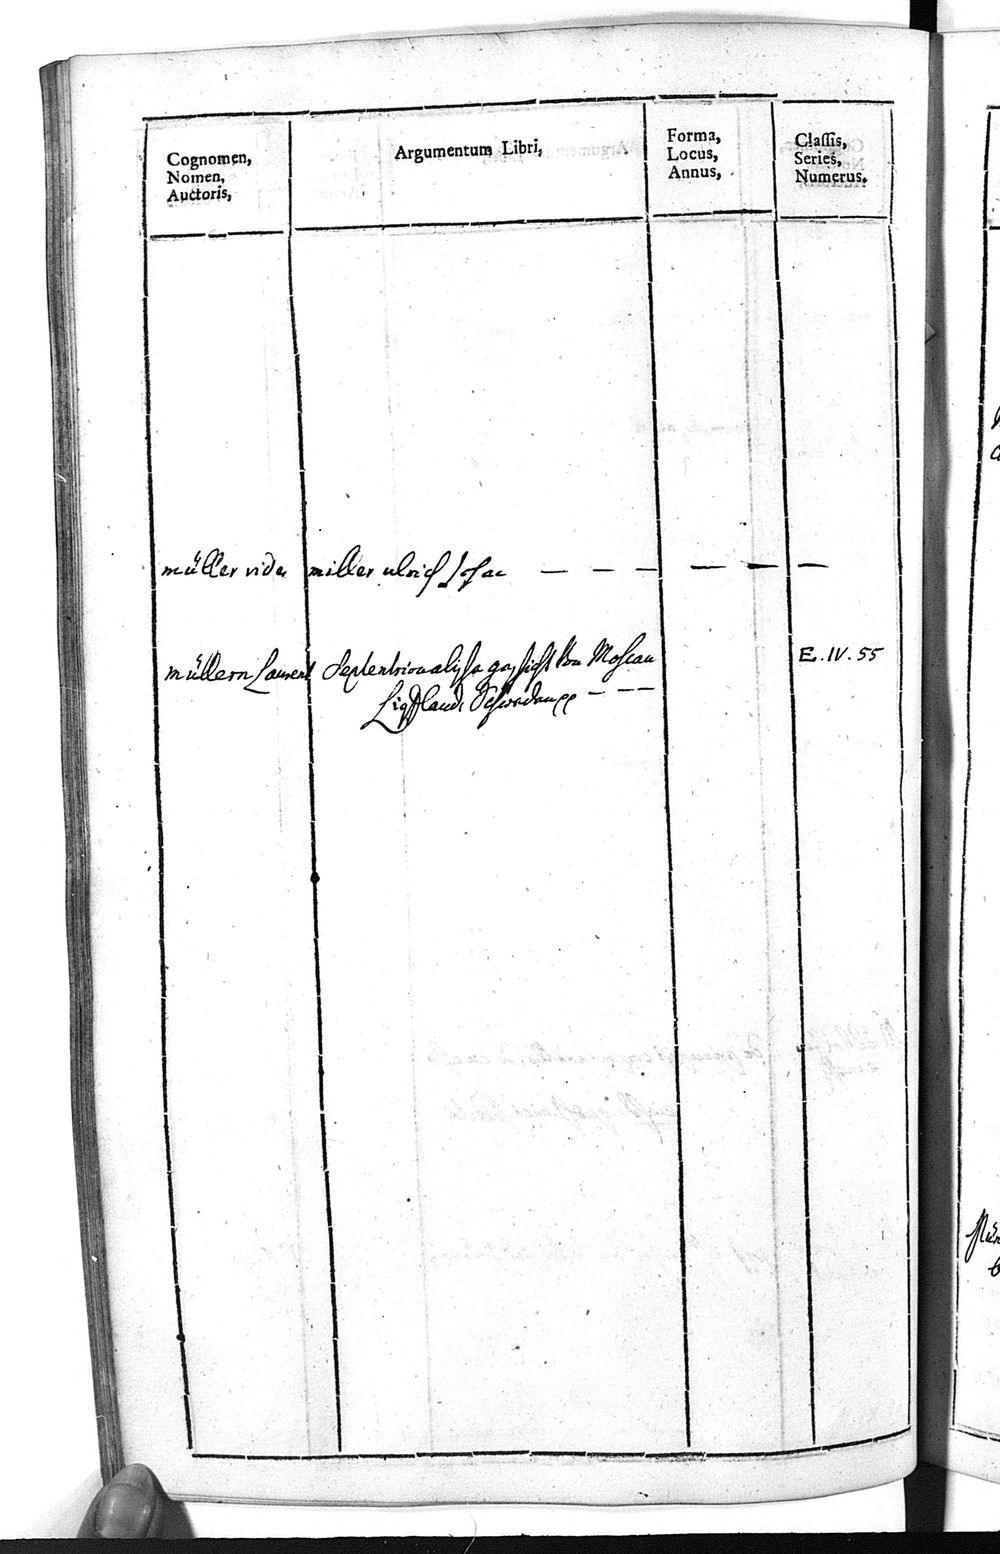 Cognomen,
Nomen,
Auctoris,
Argumentum Libri,
Forma,
Locus,
Annus,
Classis,
Series,
Numerus.
müller vide miller ulrich — — — — — —
müllern Laurent Septentrionalische von Moscau E. IV. 55
Lifflandt Schweden — — —